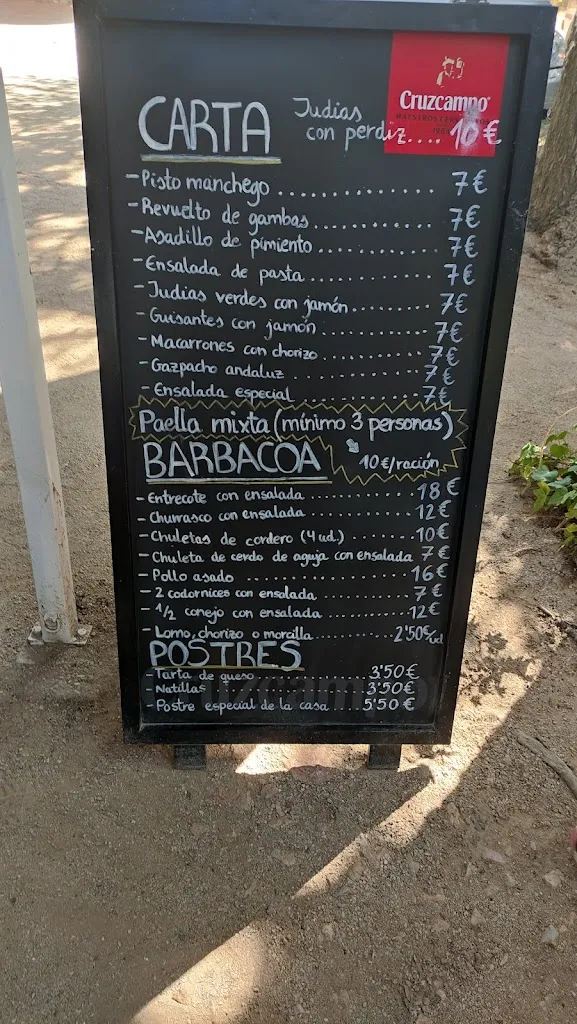 Cruzcampo
CARTA
Judias
con perdiz.... 10€
-Pisto manchego.................. 7€
-Revuelto de gambas............... 7€
-Asadillo de pimiento.............. 7€
-Ensalada de pasta................ 7€
-Judias verdes con jamón........... 7€
-Guisantes con jamón.............. 7€
-Macarrones con chorizo............ 7€
-Gazpacho andaluz................ 7€
-Ensalada especial................ 7€
Paella mixta (mínimo 3 personas)
10€/ración
BARBACOA
-Entrecote con ensalada............ 18€
-Churrasco con ensalada............ 12€
-Chuletas de cordero (4 ud.)......... 10€
-Chuleta de cerdo de aguja con ensalada 7€
-Pollo asado...................... 16€
-2 codornices con ensalada.......... 7€
-1/2 conejo con ensalada............ 12€
-Lomo, chorizo o morcilla............ 2'50€/ud
POSTRES
-Tarta de queso.............. 3'50€
-Natillas..................... 3'50€
-Postre especial de la casa..... 5'50€
Cruzcampo